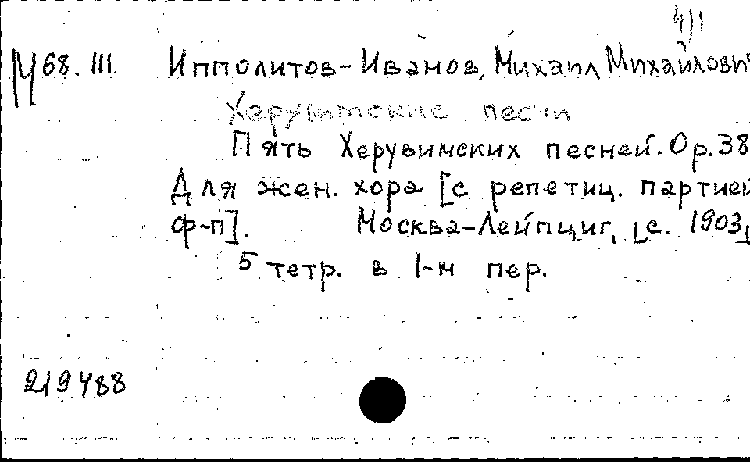 4)1
М68.III Ипполитов-Иванов, Михаил Михайлович
Херувимские песни
Пять Херувимских песней. Ор. 38
Для жен. хора [с репетиц. партией
ф-п]. Москва-Лейпциг, [с. 1903]
5 тетр. в 1-м пер.
219488